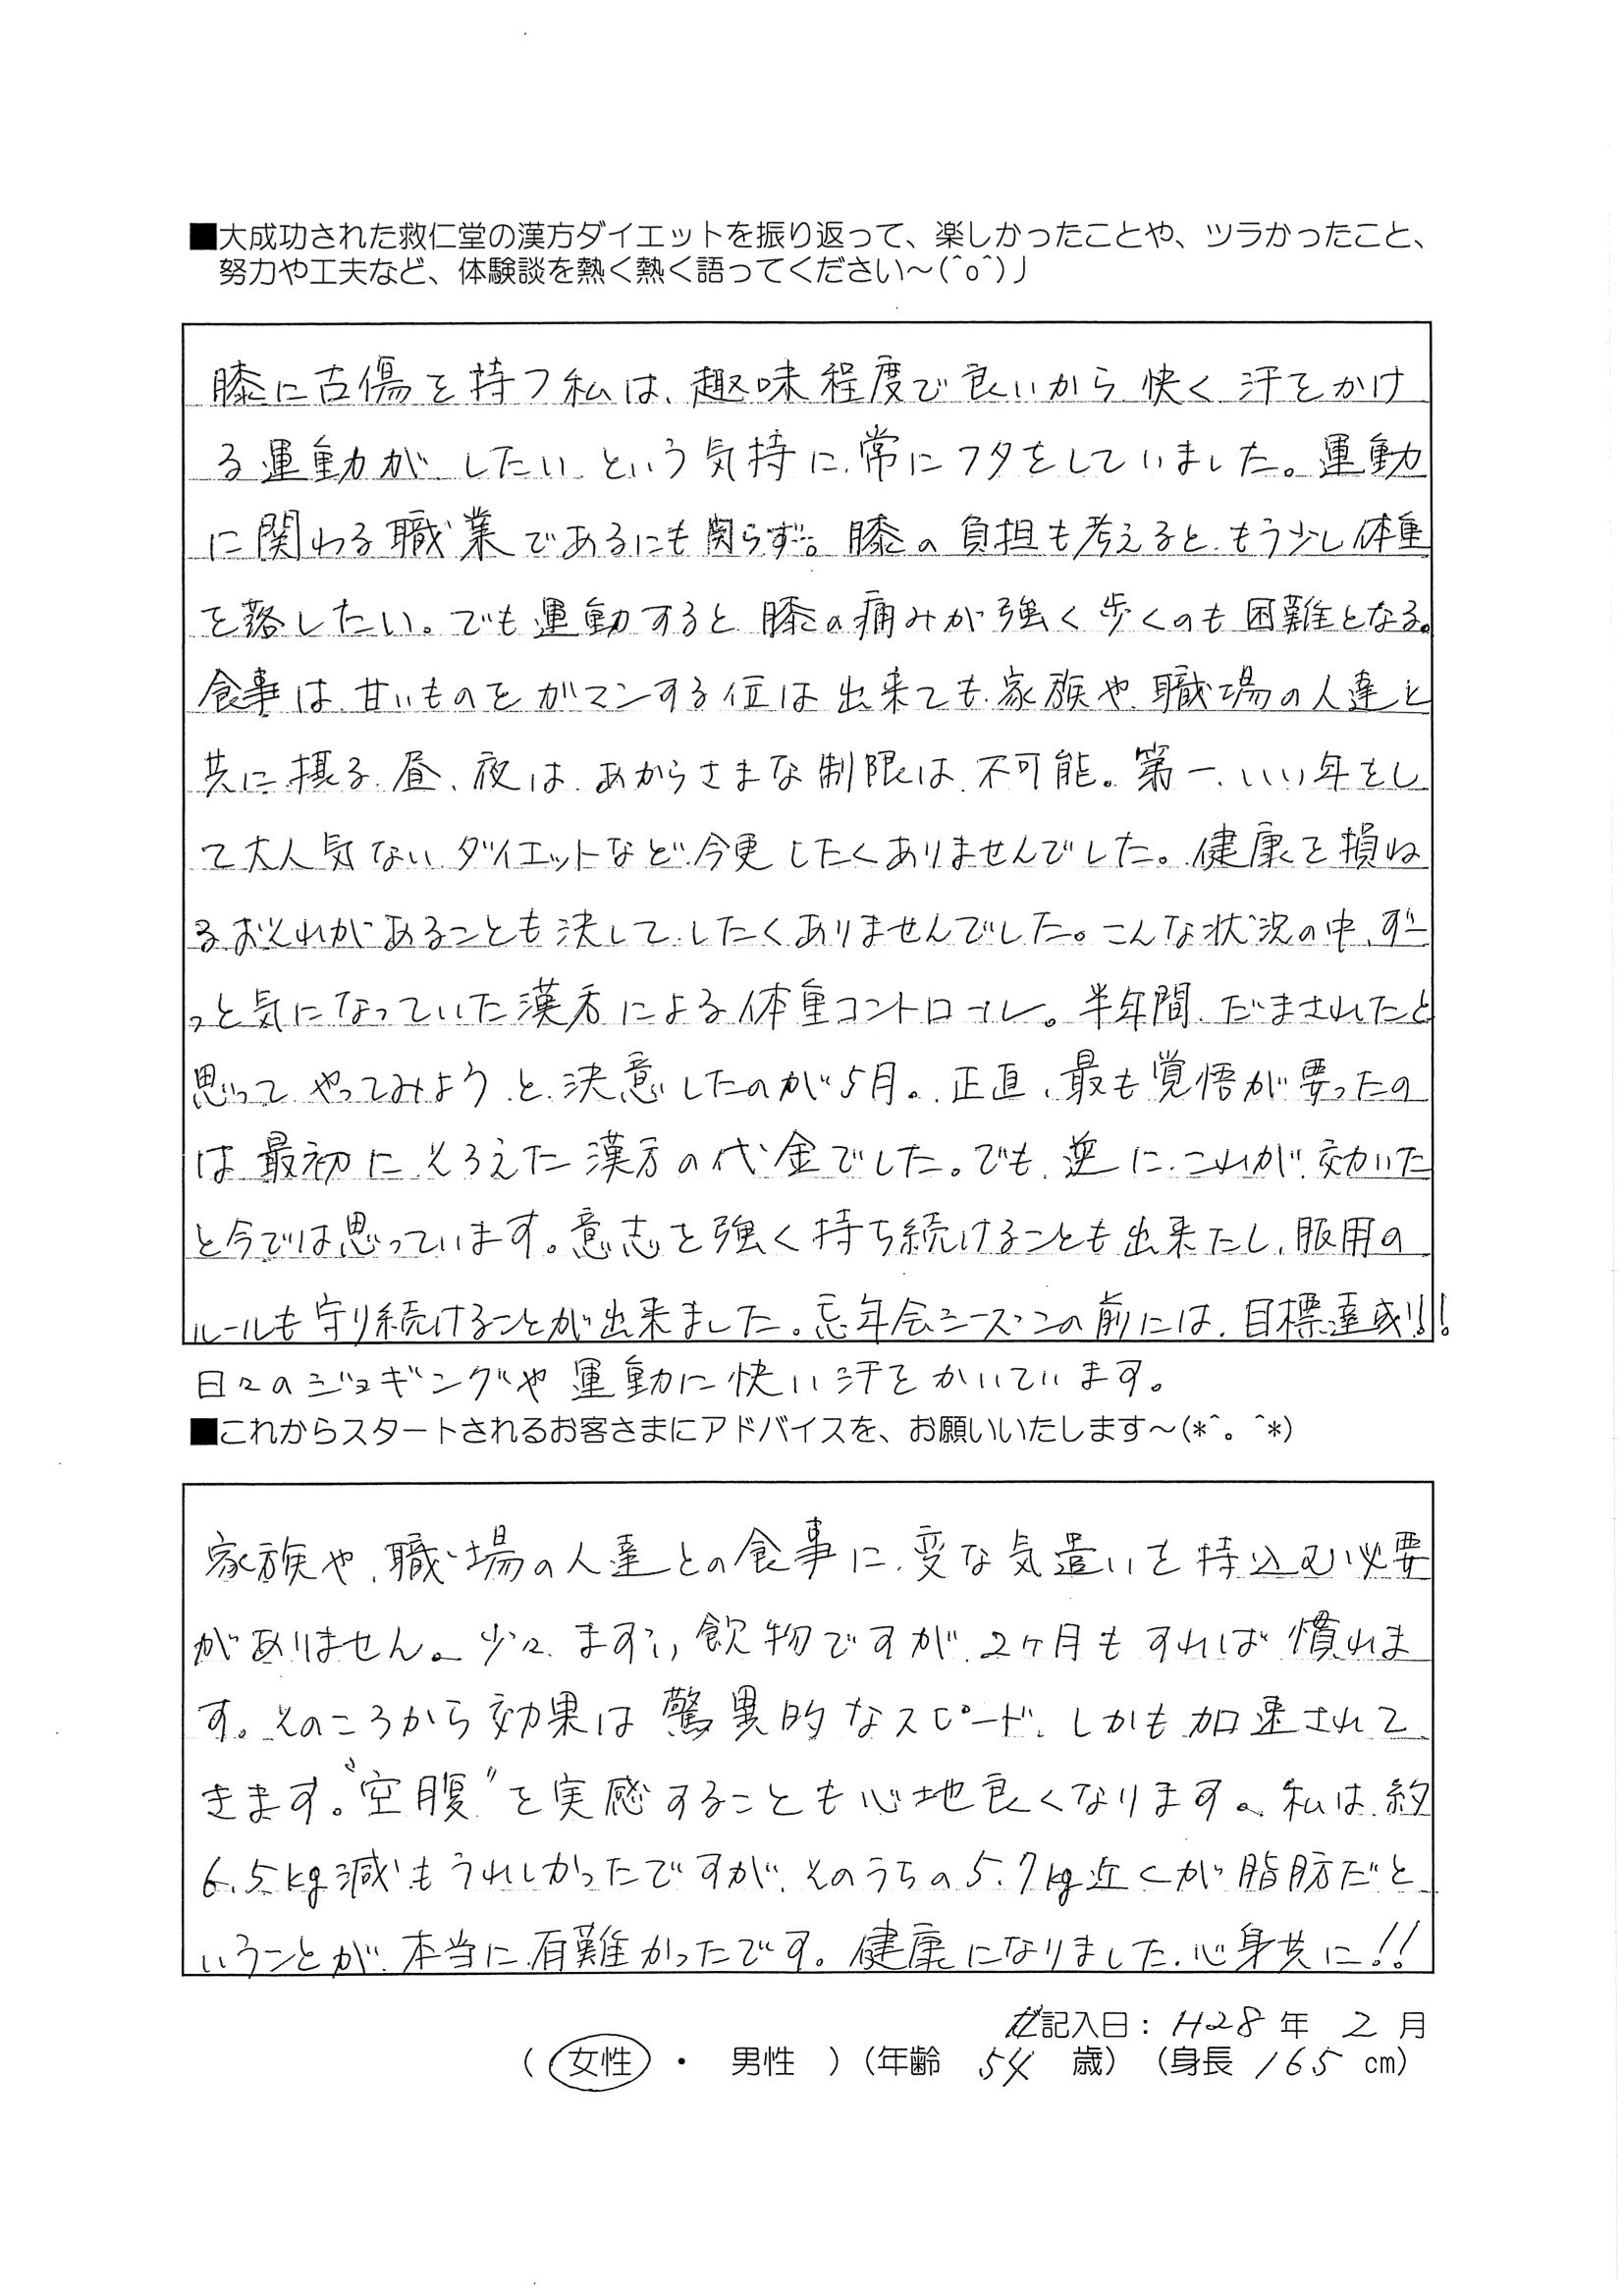 ■大成功された救仁堂の漢方ダイエットを振り返って、楽しかったことや、ツラかったこと、
努力や工夫など、体験談を熱く熱く語ってください～(^o^)丿
膝に古傷を持つ私は、趣味程度で良いから快く汗をかけ
る運動がしたいという気持に、常にフタをしていました。運動
に関わる職業であるにも関らず…。膝の負担も考えると、もう少し体重
を落したい。でも運動すると膝の痛みが強く歩くのも困難となる。
食事は、甘いものをガマンする位は出来ても、家族や、職場の人達と
共に摂る、昼、夜は、あからさまな制限は、不可能。第一、いい年をし
て大人気ないダイエットなど今更したくありませんでした。健康を損ね
るおそれがあることも決してしたくありませんでした。こんな状況の中、ずー
っと気になっていた漢方による体重コントロール。半年間、だまされたと
思って、やってみようと、決意したのが5月。正直、最も覚悟が要ったの
は最初にそろえた漢方の代金でした。でも、逆に、これが、効いた
と今では思っています。意志を強く持ち続けることも出来たし、服用の
ルールも守り続けることが出来ました。忘年会シーズンの前には、目標達成!!!
日々のジョギングや運動に快い汗をかいています。
■これからスタートされるお客さまにアドバイスを、お願いいたします～(*^。^*)
家族や、職場の人達との食事に、変な気遣いを持込む必要
がありません。少々、まずい、飲物ですが、2ヶ月もすれば慣れま
す。そのころから効果は驚異的なスピード、しかも加速されて
きます。“空腹”を実感することも心地良くなります。私は、約
6.5kg減もうれしかったですが、そのうちの5.7kg近くが脂肪だと
いうことが、本当に有難かったです。健康になりました、心身共に!!
記入日：H28年 2月
(女性 ・ 男性 ) (年齢 54 歳) (身長 165 cm)